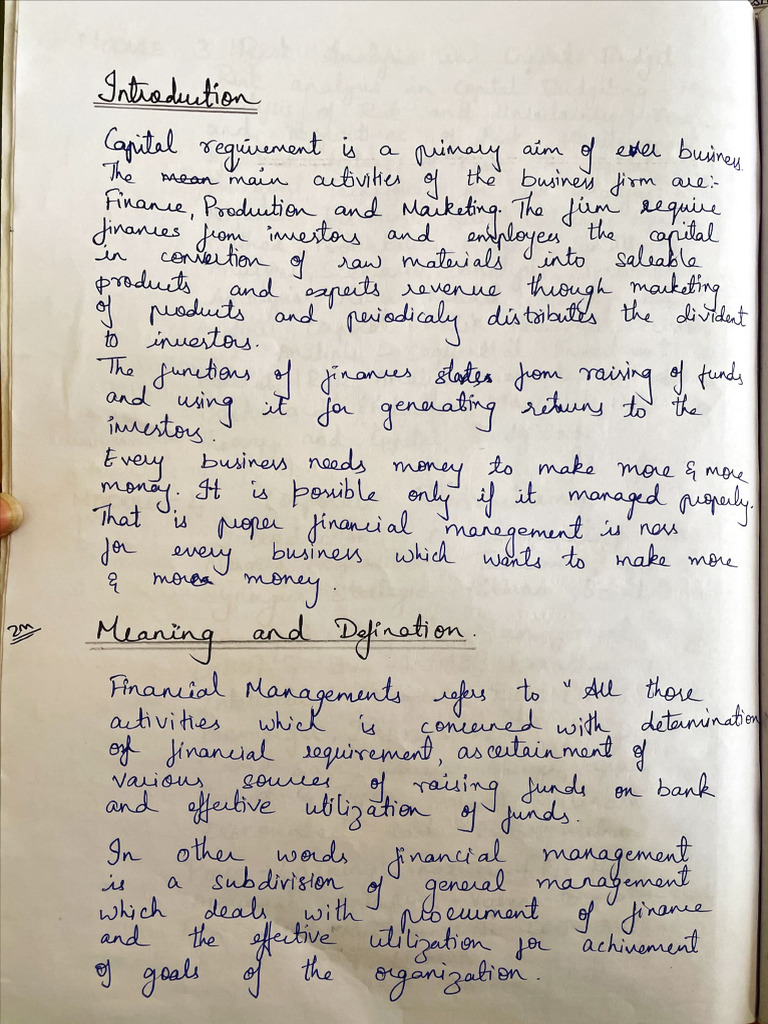 Introduction
Capital requirement is a primary aim of ever business.
The mean main activities of the business firm are:-
Finance, Production and Marketing. The firm require
finances from investors and employees the capital
in convertion of raw materials into saleable
products and experts revenue through marketing
of products and periodicaly distributes the divident
to investors.
The functions of finances states from raising of funds
and using it for generating returns to the
investors.
Every business needs money to make more & more
money. It is possible only if it managed properly.
That is proper financial manegement is
for every business which wants to make more
& more money.
2m Meaning and Defination.
Financial Managements refers to "All those
activities which is concerned with determination
of financial requirement, ascertainment of
various sources of raising funds on bank
and effective utilization of funds.
In other words financial management
is a subdivision of general management
which deals with procurment of finance
and the effective utilization for achivement
of goals of the organization.